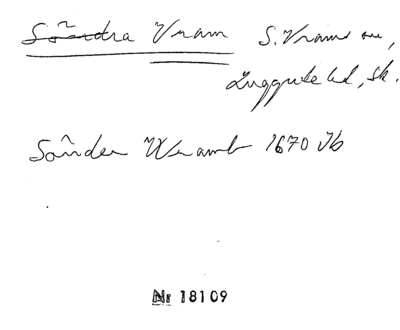 Södra Vram S. Vrams sn,
Luggude hd, Sk.
Sönder Wramb 1670 Jb
Nr 18109